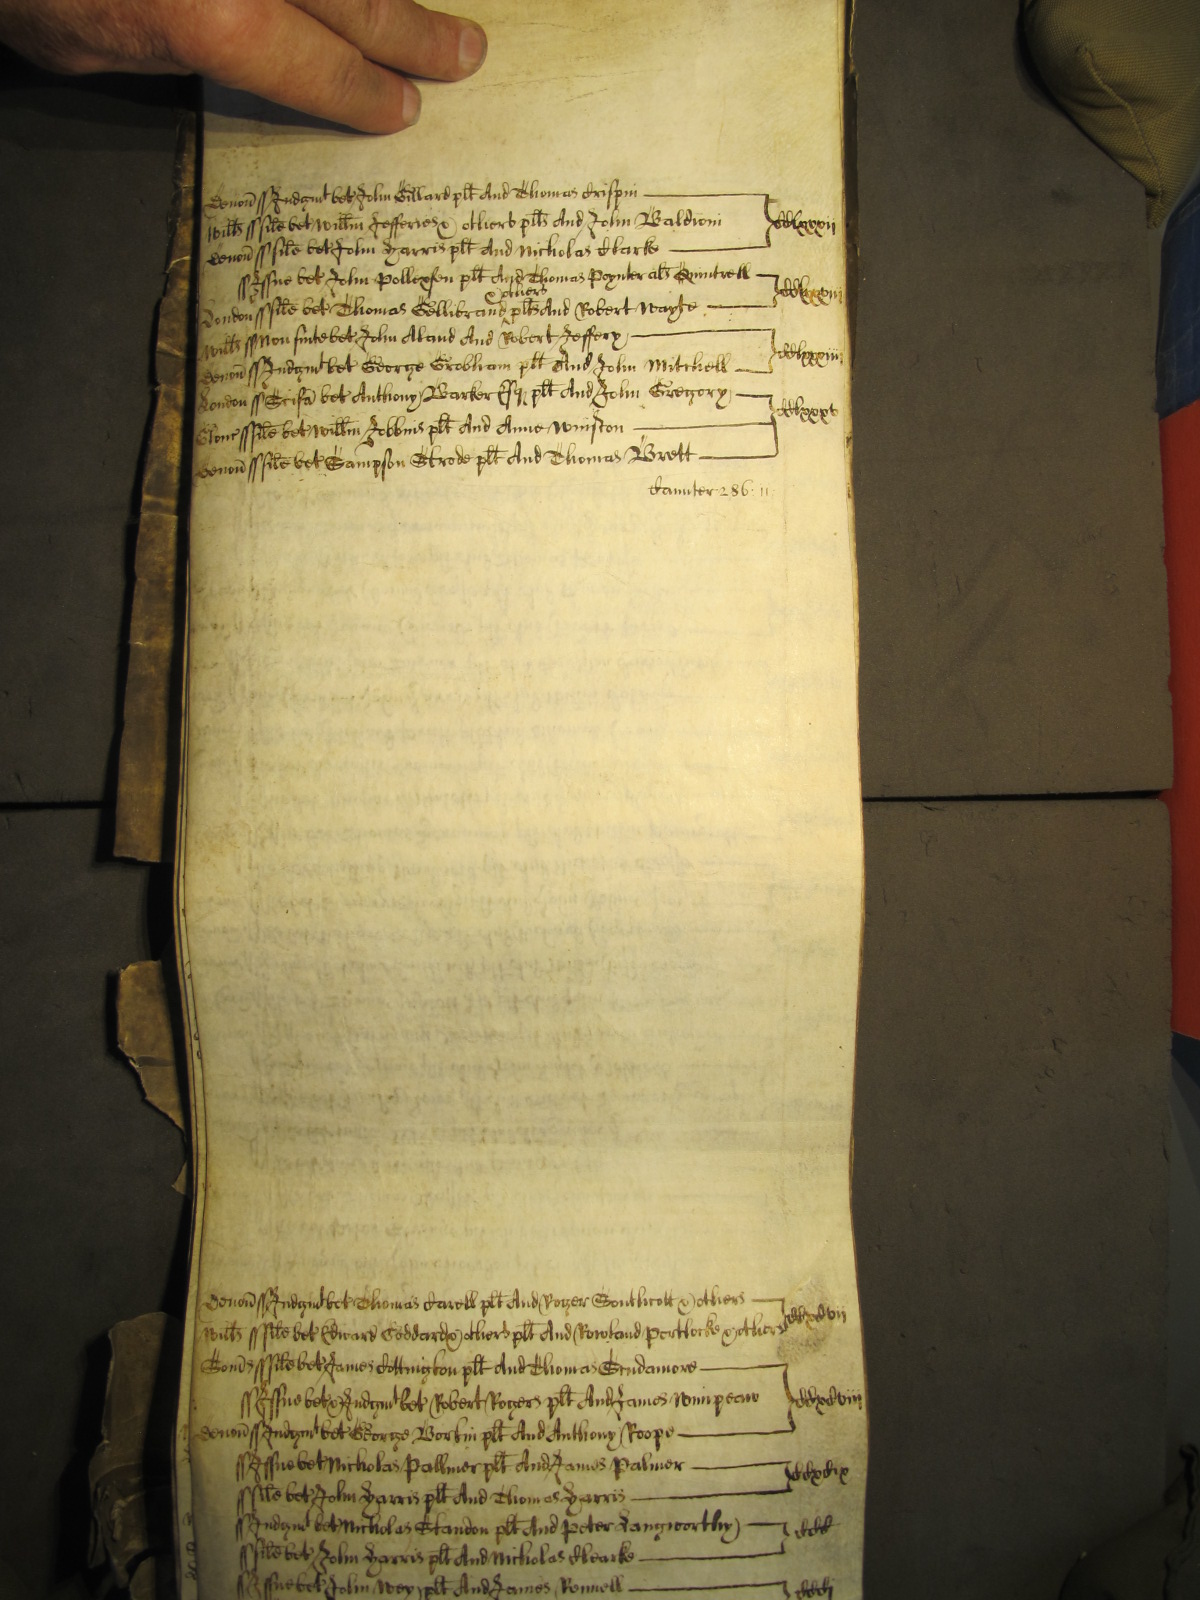 Devon ss Judgmt bet John Gillard plt And Thomas Crispin
Wilts ss file bet Willm Jefferies & others plts And John Baldwin cclxxxii
Devon ss file bet John Harris plt And Nicholas Clarke
ss Issue bet John Pollexfen plt And Thomas Poynter als Quintrell
& others
London ss file bet Thomas Gellibrand plts And Robert Wayte
Wilts ss Non suite bet John Aland And Robert Jeffery
Devon ss Judgmt bet George Grobham plt And John Mitchell cclxxxiiii
London ss bet Anthony Barker Esq plt And John Gregory
Glouc ss file bet Willm Jobbins plt And Anne Winston cclxxxv
Devon ss file bet Sampson Strode plt And Thomas Brett
286: 11
Devon ss Judgmt bet Thomas Carell plt And Roger Southcott & others
Wilts ss file bet Edward Goddard & others plt And Rowland Portlocke & others ccxcvii
Soms ss file bet James Cottington plt And Thomas Scudamore
ss Issue bet & Judgmt bet Robert Rogers plt And James Winpeare ccxcviii
Devon ss Judgmt bet George Workin plt And Anthony Roope
ss Issue bet Nicholas Pallmer plt And James Palmer ccxcix
ss file bet John Harris plt And Thomas Harris
ss Judgmt bet Nicholas Standon plt And Peter Langworthy ccc
ss file bet John Harris plt And Nicholas Clearke
ss Issue bet John Wey plt And James Rennell ccci